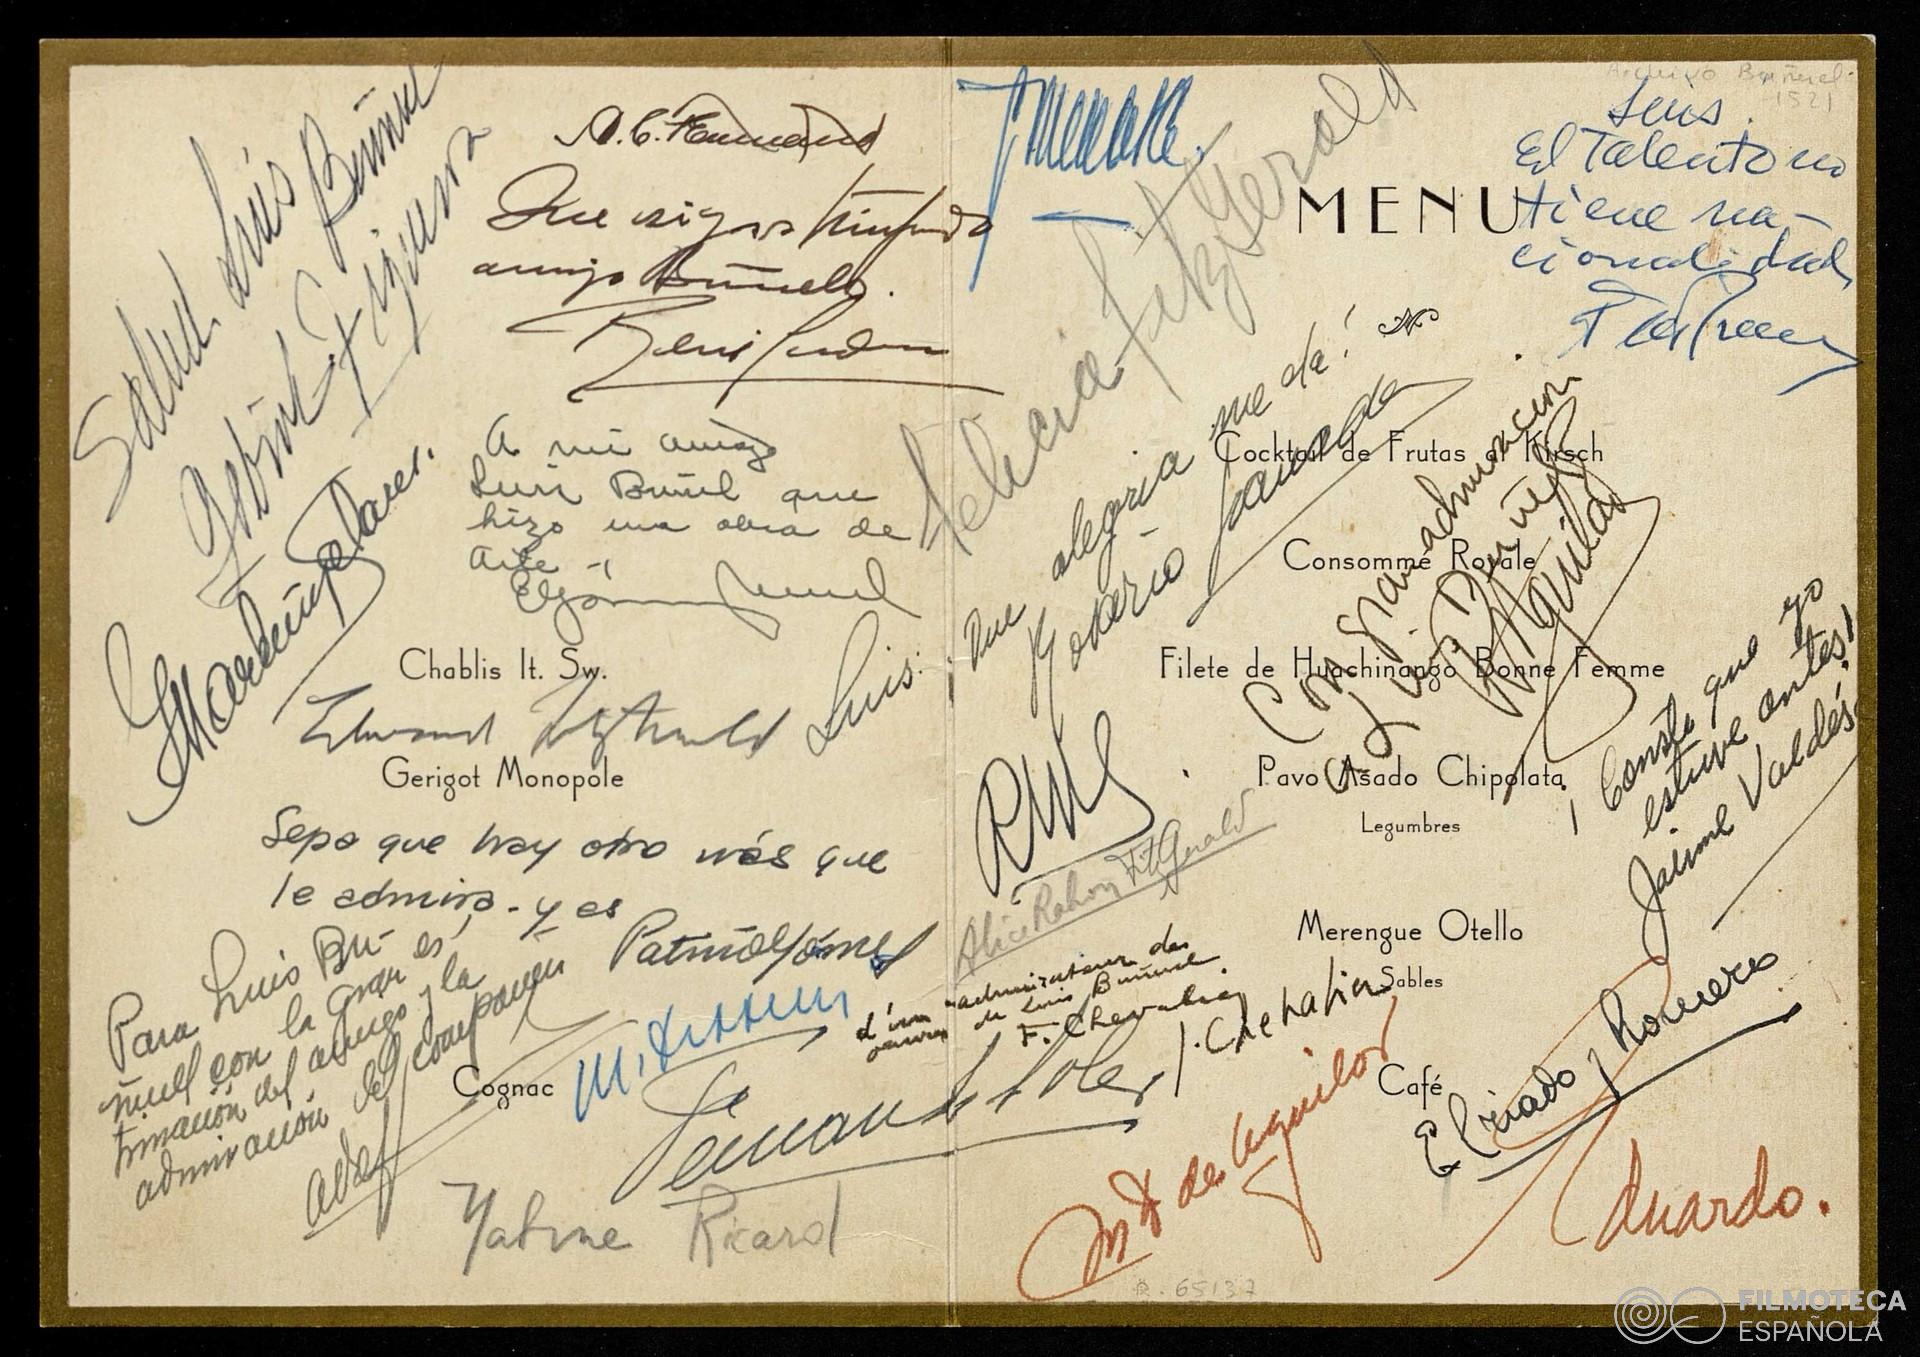 Salud Luis Buñuel
Gabriel Figueroa
Que sigas triunfando
amigo Buñuel.
A mi amigo
Luis Buñuel que
hizo una obra de
Arte -
Chablis It. Sw.
Edward Fitzgerald
Gerigot Monopole
Sepa que hay otro más que
le admira - y es
Patiño Gómez
Para Luis Bu-
ñuel con la gran es-
timación del amigo y la
admiración del compañero
Cognac
Ricard
Archivo Buñuel
1521
Luis.
El Talento no
tiene na-
cionalidad
MENU
Felicia Fitzgerald
Luis:
Que alegria me da!
Rosario Granados
Cocktail de Frutas al Kirsch
Consommé Royale
Con gran admiracion
a Luis Buñuel
Aguilar
Filete de Huachinango Bonne Femme
Pavo Asado Chipolata
Legumbres
¡Conste que yo
estuve antes!
Jaime Valdés
Alice Rahon Fitzgerald
d'un admirateur des
œuvres de Luis Buñuel
F. Chevalier
Merengue Otello
Sables
Café
Fernando Soler
Ma de Aguilar
El criado, Romero
Eduardo.
R. 65137
FILMOTECA
ESPAÑOLA